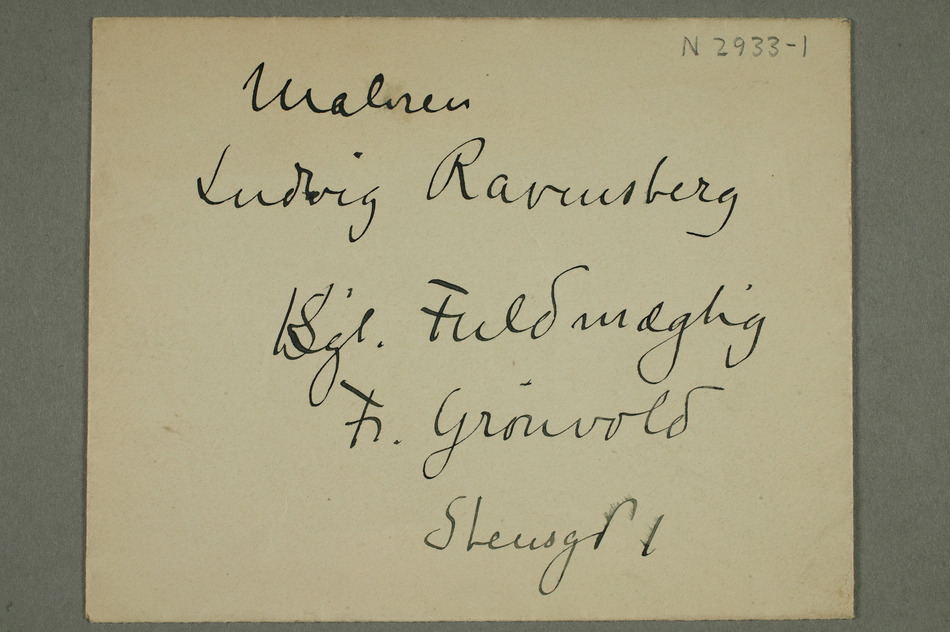 N 2933-1
Maleren
Ludvig Ravensberg
Kgl. Fuldmægtig
Fr. Grönvold
Stensgd 1